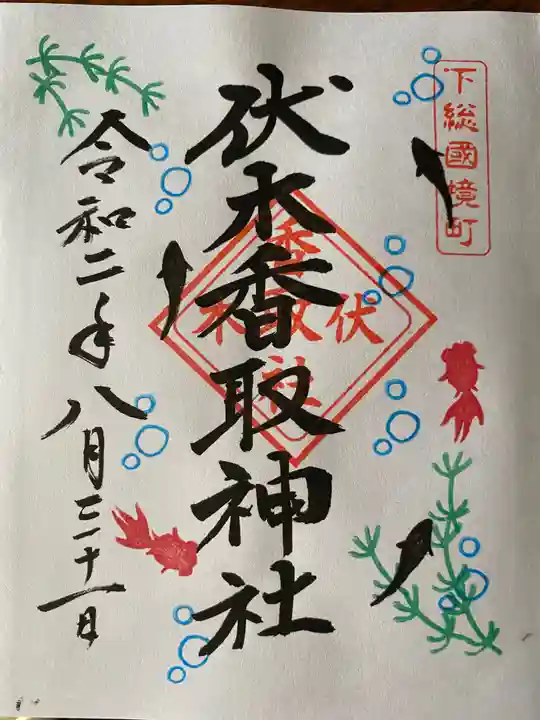 下総國境町
伏木香取神社
伏木
香取
社
令和二年八月三十一日